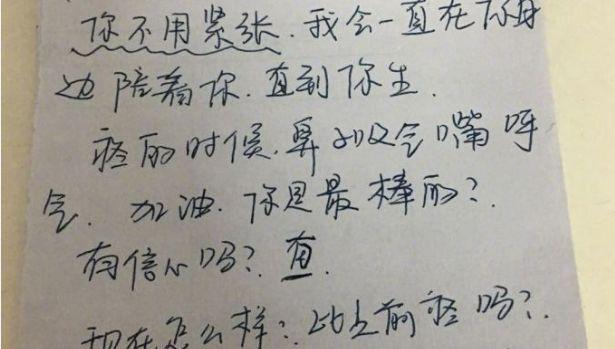 你不用紧张.我会一直在你身
边陪着你.直到你生.
疼的时候.鼻子吸气嘴呼
气.加油.你是最棒的?.
有信心吗?.有.
现在怎么样?比之前疼吗?.